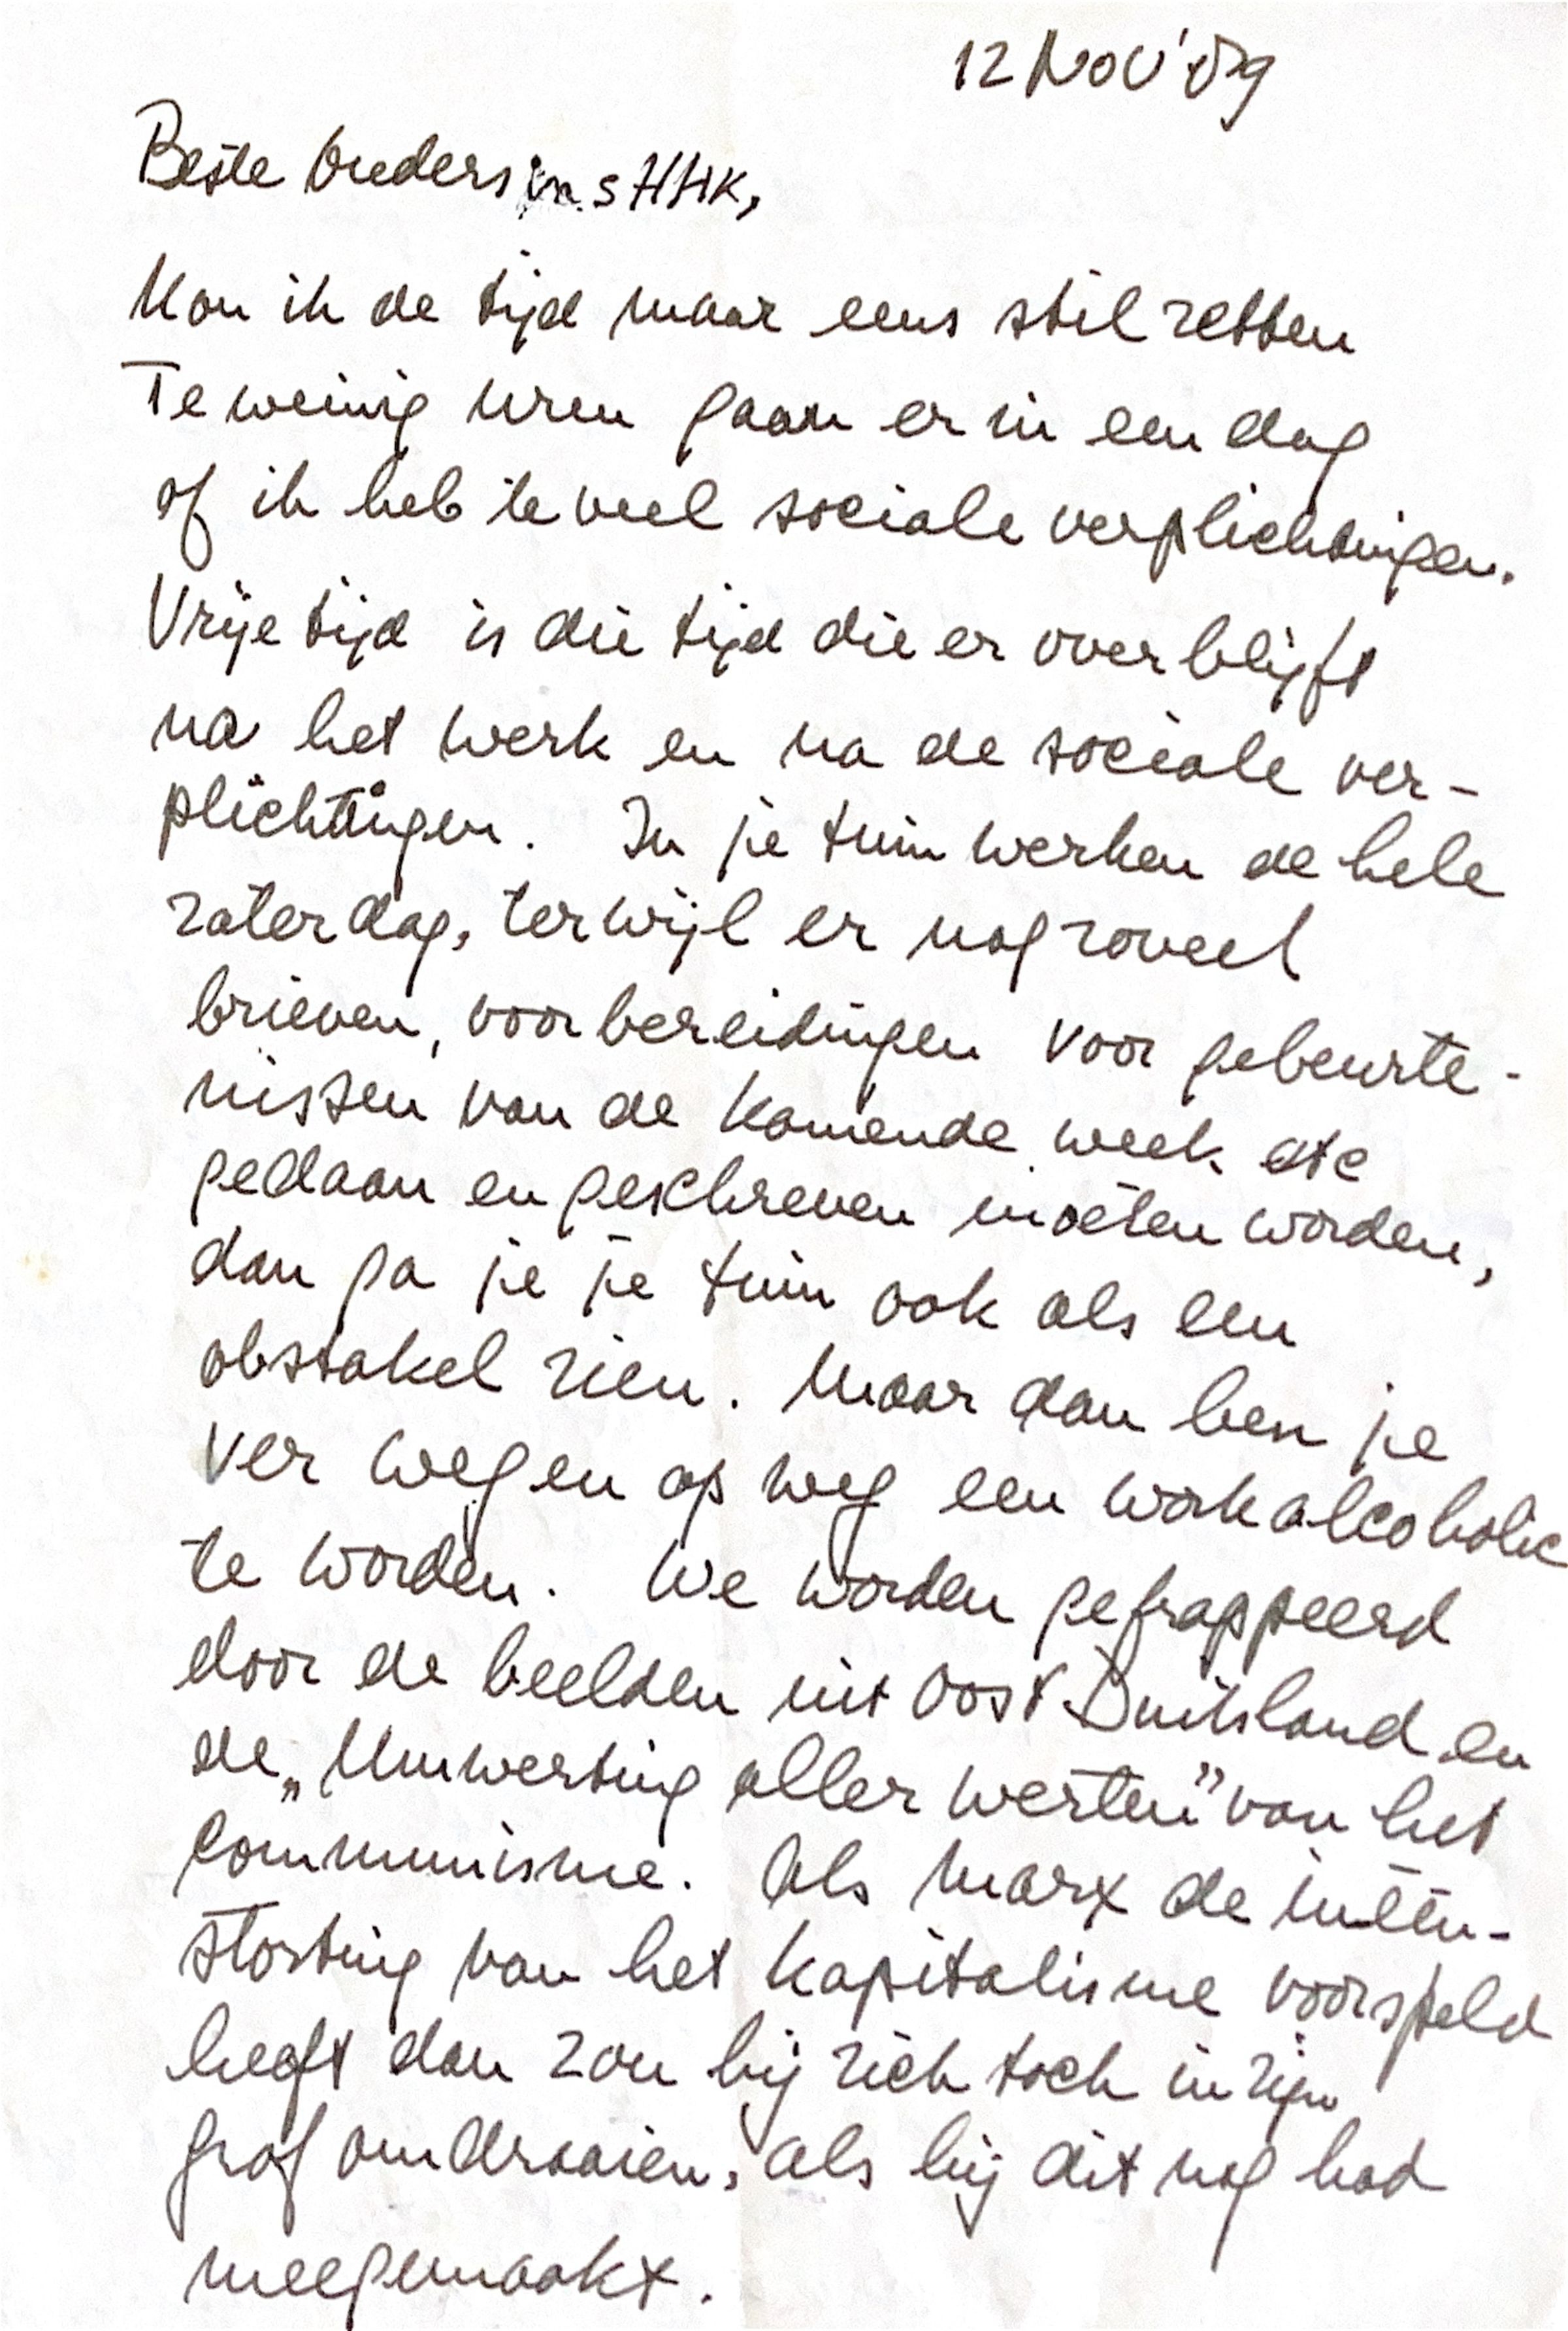 12 Nov '89
Beste Ouders in s HHK,
Kon ik de tijd maar eens stil zetten
Te weinig uren gaan er in een dag
of ik heb te veel sociale verplichtingen.
Vrije tijd is die tijd die er overblijft
na het werk en na de sociale ver-
plichtingen. In je tuin werken de hele
zaterdag, terwijl er nog zoveel
brieven, voorbereidingen voor gebeurte-
nissen van de komende week etc
gedaan en geschreven moeten worden,
dan ga je je tuin ook als een
obstakel zien. Maar dan ben je
ver weg en op weg een workalcoholic
te worden. We worden gefrappeerd
door de beelden uit Oost Duitsland en
de „Umwerting aller werten" van het
communisme. Als Marx de ineen-
storting van het kapitalisme voorspeld
heeft dan zou hij zich toch in zijn
graf omdraaien, als hij dit nog had
meegemaakt.